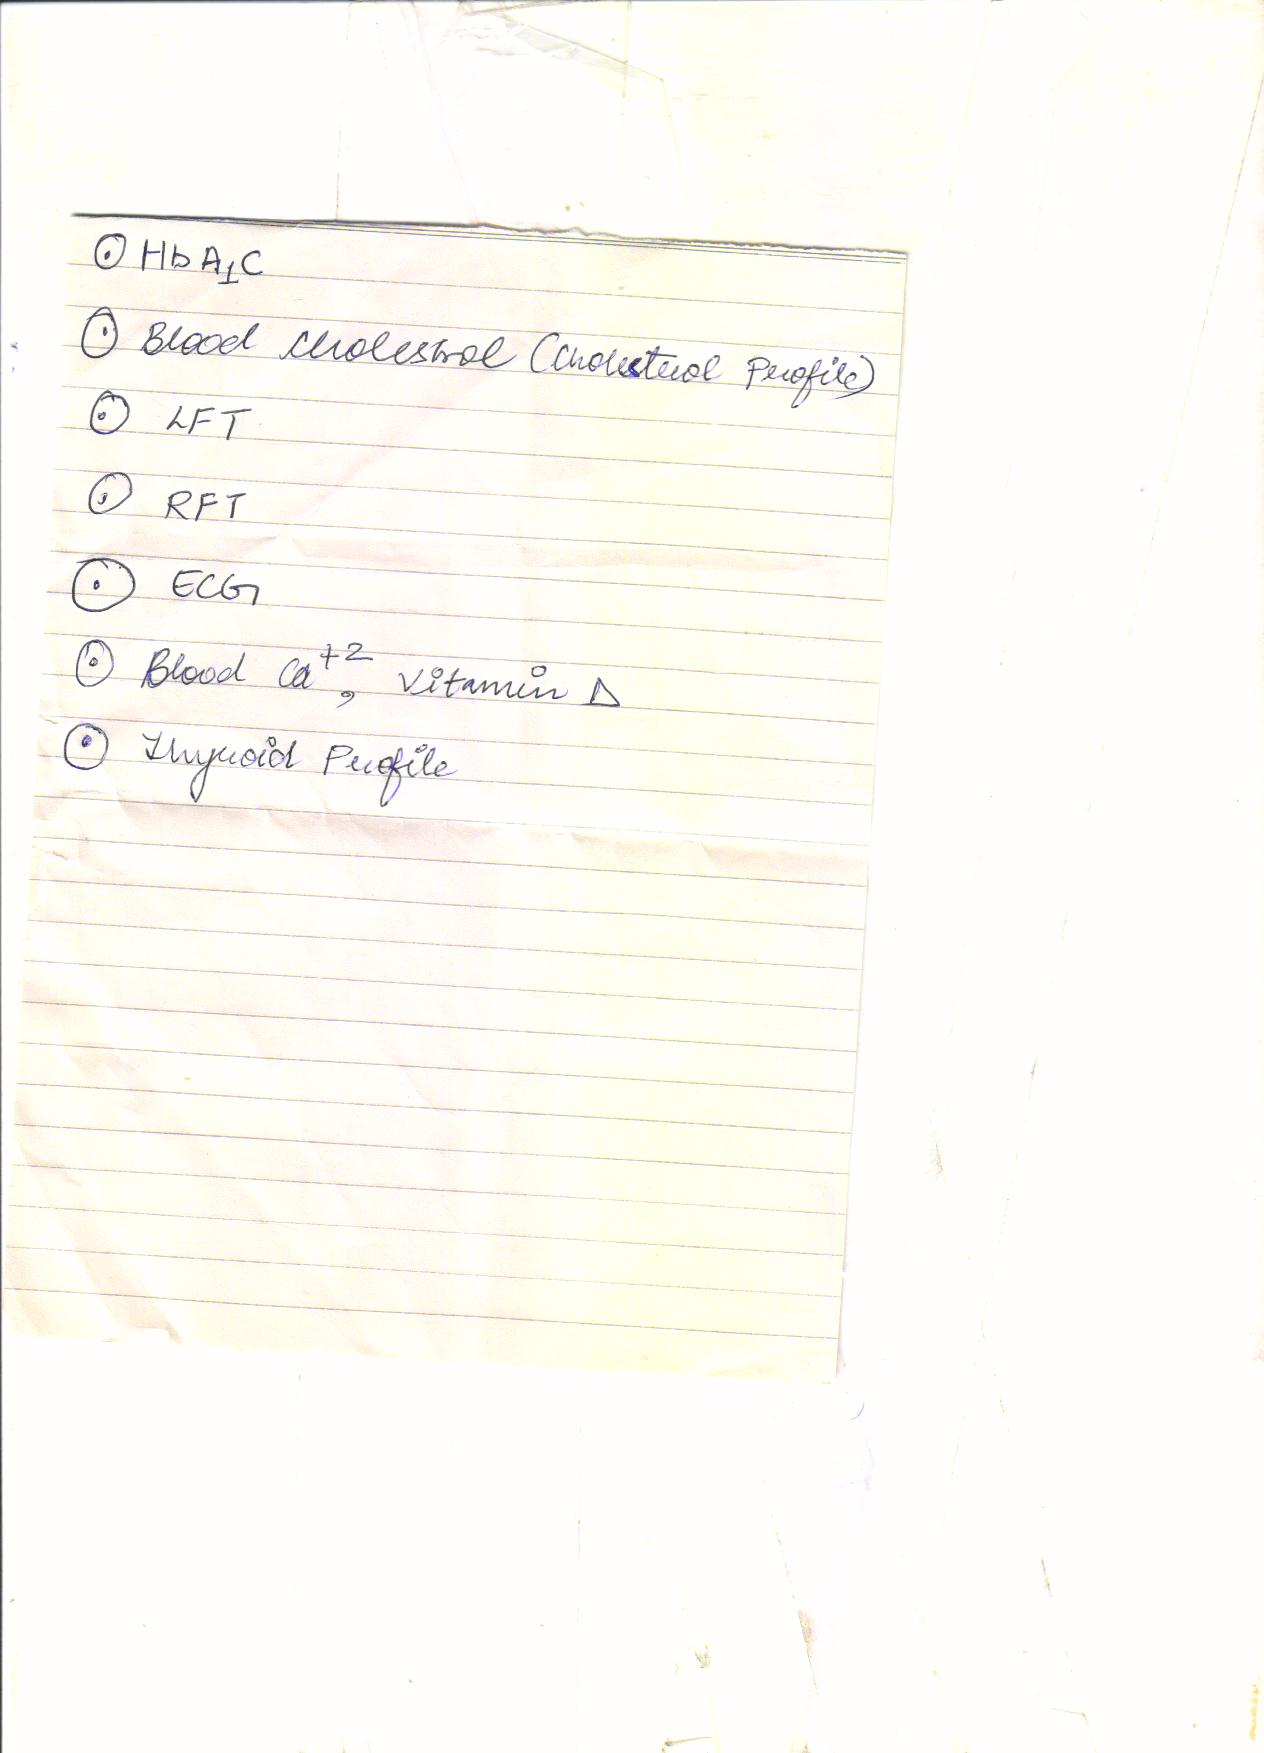 ⊙ HbA1C
⊙ Blood Cholestrol (Cholesterol Profile)
⊙ LFT
⊙ RFT
⊙ ECG
⊙ Blood Ca⁺², Vitamin D
⊙ Thyroid Profile